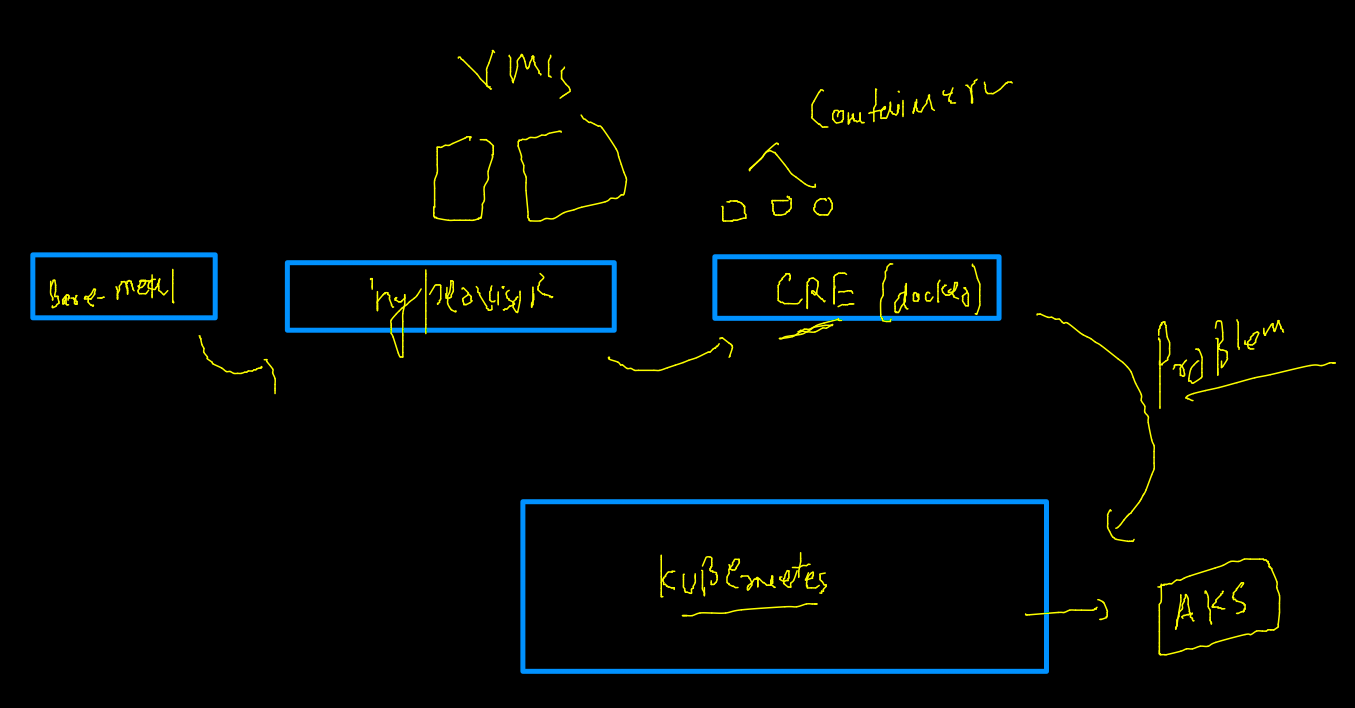 VM's
Containers
Bare-metal
hypervisor
CRE (docker)
Problem
Kubernetes
AKS